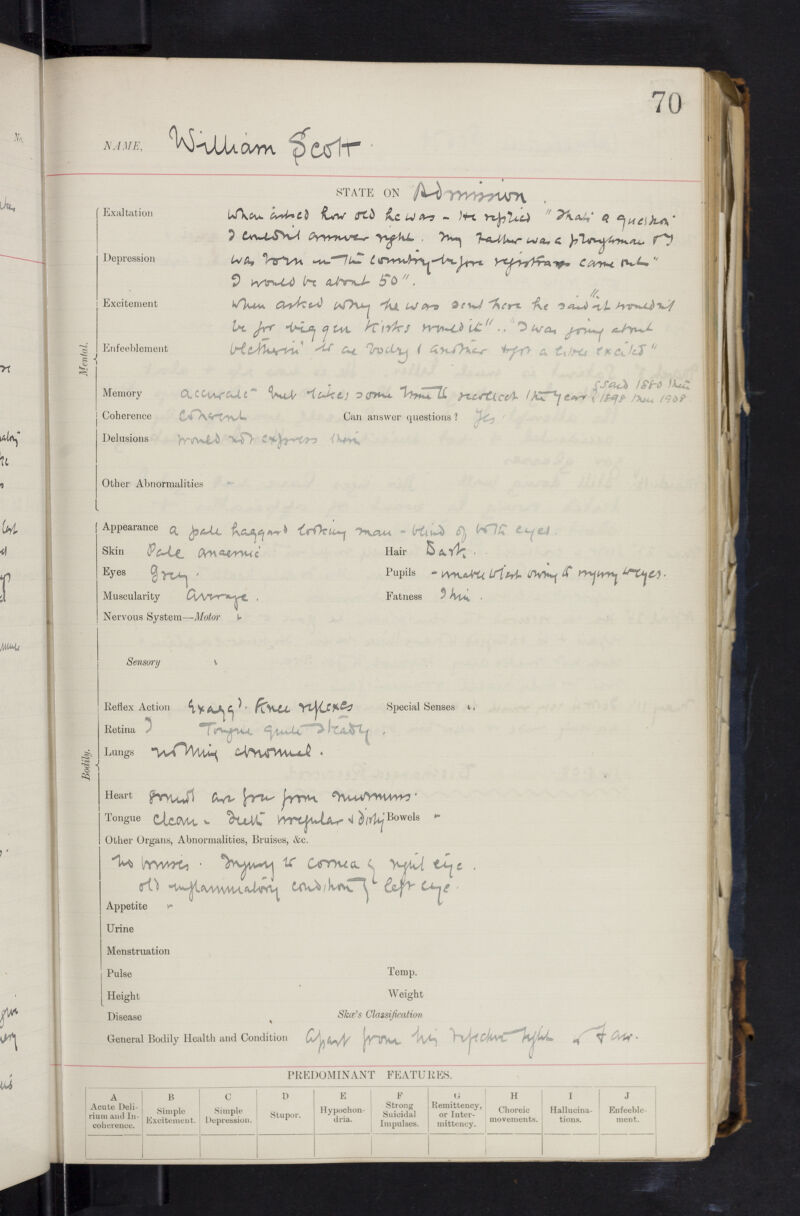 70
NAME, William Scott
STATE ON Admission.
Mental.
Exaltation When asked how old he was - He replied "That's a question
I couldn't answer right. My Father was a ploughman & I
Depression was born in the Country before registrars came out"
I would be about 50".
Excitement When asked why he was sent here he said "it wouldn't
be for biggen Kirks would it".. "I was going about
Enfeeblement bletherin' to ae body & another & got a little excited"
Memory accurate - but takes some time to recollect the year (said 1880 then
1898 then 1908
Coherence Coherent Can answer questions? Yes
Delusions would not express them
Other Abnormalities -
Bodily.
Appearance a pale haggard looking man - blind of both eyes.
Skin Pale anaemic Hair Dark.
Eyes Grey. Pupils - unable to test owing to injury to eyes.
Muscularity Average. Fatness Thin.
Nervous System—Motor
Sensory
Reflex Action Exagg'd. Knee reflexes Special Senses
Retina Tongue quite steady.
Lungs nothing abnormal.
Heart sounds are free from murmurs.
Tongue Clean - Teeth irregular & dirty Bowels -
Other Organs, Abnormalities, Bruises, &c.
No bruises. Injury to cornea of right eye.
old inflammatory condition of left eye.
Appetite -
Urine
Menstruation
Pulse Temp.
Height Weight
Disease Skæ's Classification
General Bodily Health and Condition Apart from his defective sight is fair.
PREDOMINANT FEATURES.
A B C D E F G H I J
Acute Delirium and Incoherence. Simple Excitement. Simple Depression. Stupor. Hypochondria. Strong Suicidal Impulses. Remittency, or Intermittency. Choreic movements. Hallucinations. Enfeeblement.